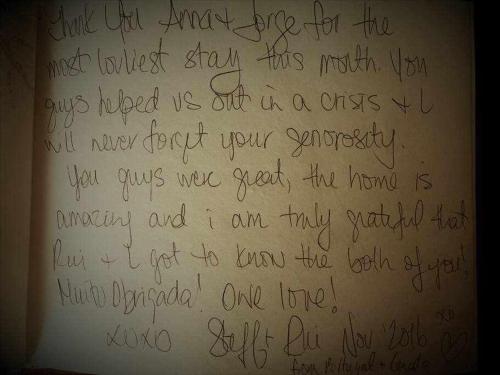 Thank You Anna + Jorge for the
most lovliest stay this month. You
guys helped us out in a crisis + I
will never forget your generosity.
You guys were great, the home is
amazing and i am truly grateful that
Rui + I got to know the both of you!
Muito Obrigada! One love!
xoxo Steff + Rui Nov '2016 xo
from Portugal + Canada